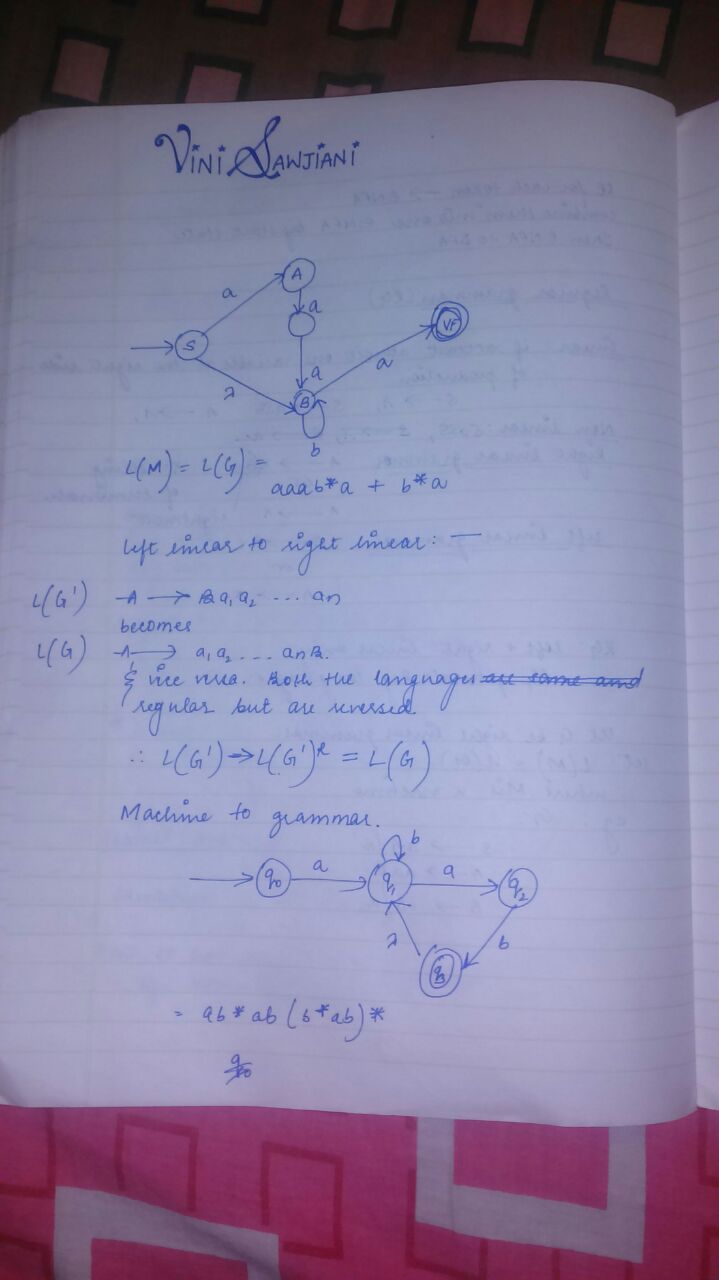 Vini Lawjiani
A
a
a
S
VF
a
a
λ
B
b
L(M) = L(G) =
aaab*a + b*a
left linear to right linear: —
L(G') A → B a₁ a₂ ... an
becomes
L(G) A → a₁ a₂ ... an B.
& vice versa. Both the languages are same and
regular but are reversed.
∴ L(G') → L(G')ᴿ = L(G)
Machine to grammar.
b
q₀ a q₁ a q₂
λ b
q₃
= ab*ab (b*ab)*